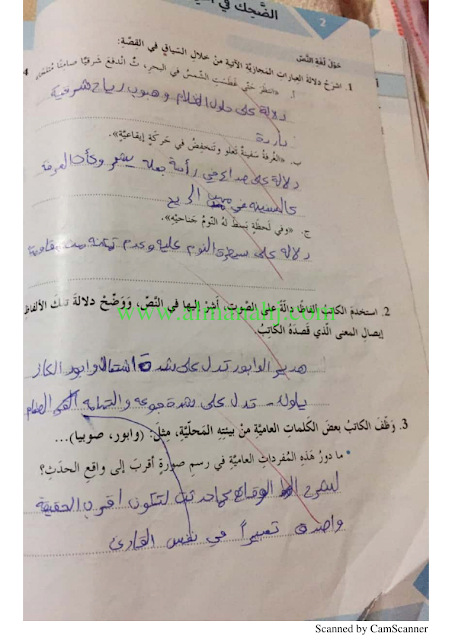 الضَّحِك في
2
حَوْلَ لُغَةِ النَّصِّ
1. اشرَحْ دلالةَ العباراتِ المَجازيّةِ الآتيةِ منْ خلالِ السّياقِ في القِصّةِ:
أ. «انتظرَ حتّى غَطَسَتِ الشّمسُ في البحرِ، ثُمّ اندفعَ شرقيًّا صامتًا
دلالة على حلول الظلام وهبوب رياح شرقية
باردة
ب. «الغُرفةُ سَفينةٌ تَعلو وتَنخفِضُ في حَركةٍ إيقاعيّةٍ».
دلالة على صداع في رأسه جعله يشعر وكأن الغرفة
كالسفينة في الريح
ج. «وفي لَحظةٍ بَسَطَ لهُ النّومُ جَناحيْهِ».
دلالة على سيطرة النوم عليه وعدم تمكنه من مقاومة
2. استخدمَ الكاتبُ ألفاظًا دالّةً على الصّوتِ، أشِرْ إليها في النّصِّ، ووَضّحْ دلالةَ تلكَ الألفاظِ
www.almanahj.com
إيصالِ المعنى الّذي قصدَهُ الكاتبُ.
هدير الوابور تدل على شدة اشتعال وابور الكاز
تدل على شدة جوعه والتهامه الطعام
3. وَظّفَ الكاتبُ بعضَ الكلماتِ العاميّةِ منْ بيئتِهِ المَحلّيّةِ، مِثلَ: (وابور، صوبيا)...
• ما دورُ هذهِ المُفرداتِ العاميّةِ في رسمِ صورةٍ أقربَ إلى واقعِ الحدثِ؟
ليشرح الوقائع كما حدثت لتكون أقرب الحقيقة
وأصدق تعبيراً في نفس القارئ
Scanned by CamScanner